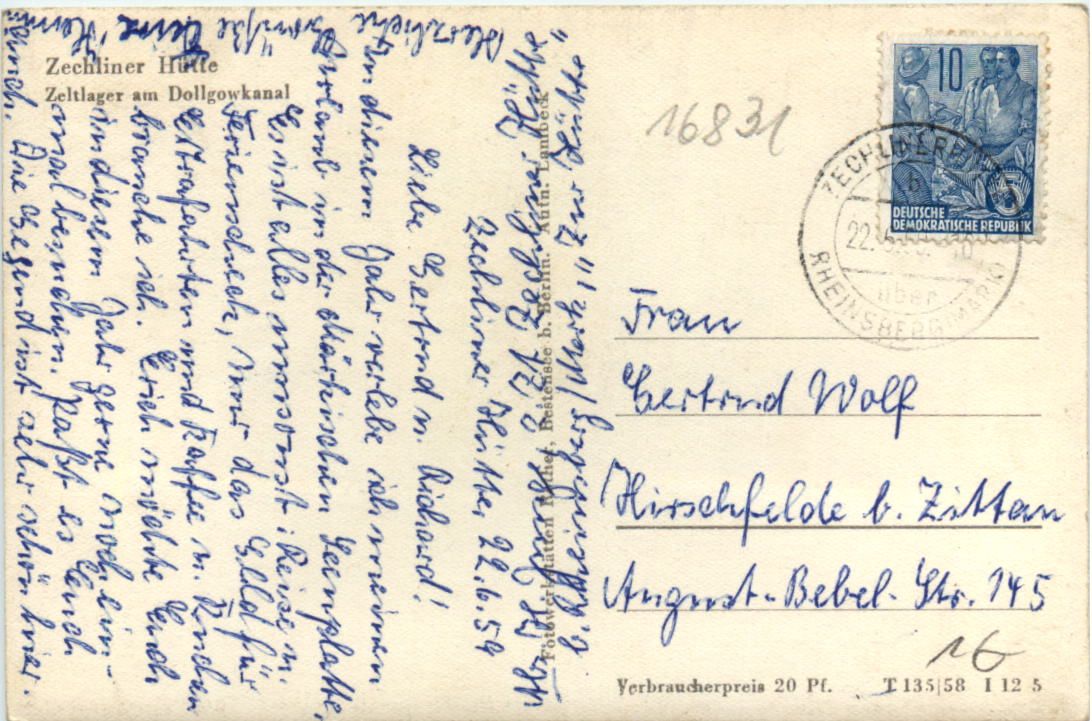 Zechliner Hütte
Zeltlager am Dollgowkanal
"Zur Hütte"
b. Rheinsberg/Mark
Zechliner Hütte, 22.6.59
Liebe Gertrud u. Richard!
In diesem Jahr verlebe ich meinen
Urlaub in der Märkischen Seenplatte,
Es ist alles umsonst: Reise u.
Ferienscheck, nur das Geld für
Extrafahrten und Kaffee u. Kuchen
brauche ich. Erich möchte Euch
in diesem Jahr gerne noch ein-
mal besuchen. Paßt es Euch
Die Gegend ist sehr schön hier.
Herzliche
Grüße Eure
Fotowerkstätten Rother, Bestensee b. Berlin. Aufn. Lambeck
16831
10
5
DEUTSCHE
DEMOKRATISCHE REPUBLIK
ZECHLINERHÜTTE
b
22.
über
RHEINSBERG (MARK)
Frau
Gertrud Wolf
Hirschfelde b. Zittau
August-Bebel-Str. 145
16
Verbraucherpreis 20 Pf.
T 135|58 I 12 5